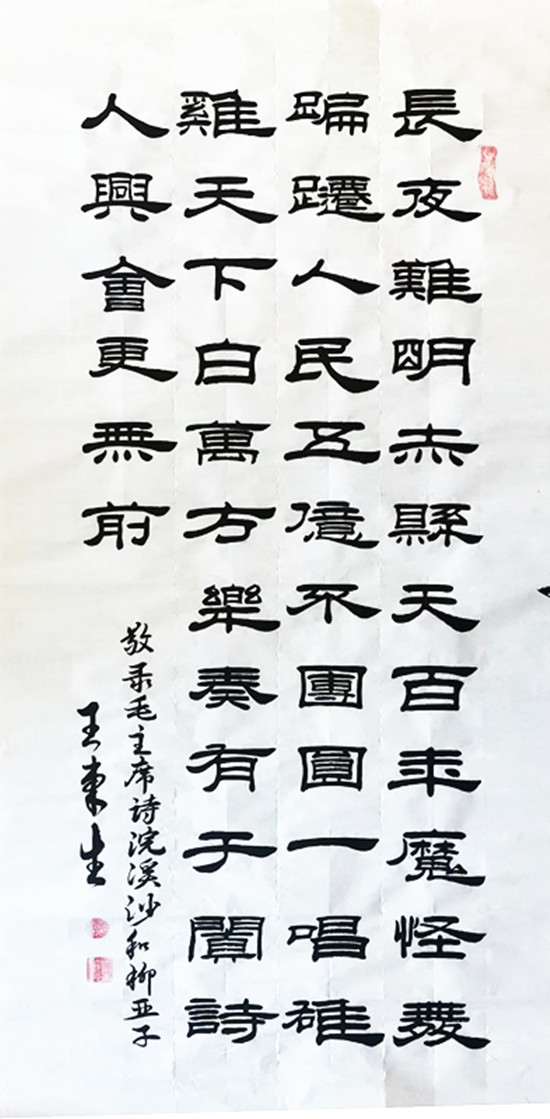 長夜難明赤縣天百年魔怪舞
蹁躚人民五億不團圓一唱雄
雞天下白萬方樂奏有于闐詩
人興會更無前
敬录毛主席詩浣溪沙和柳亚子
王東生